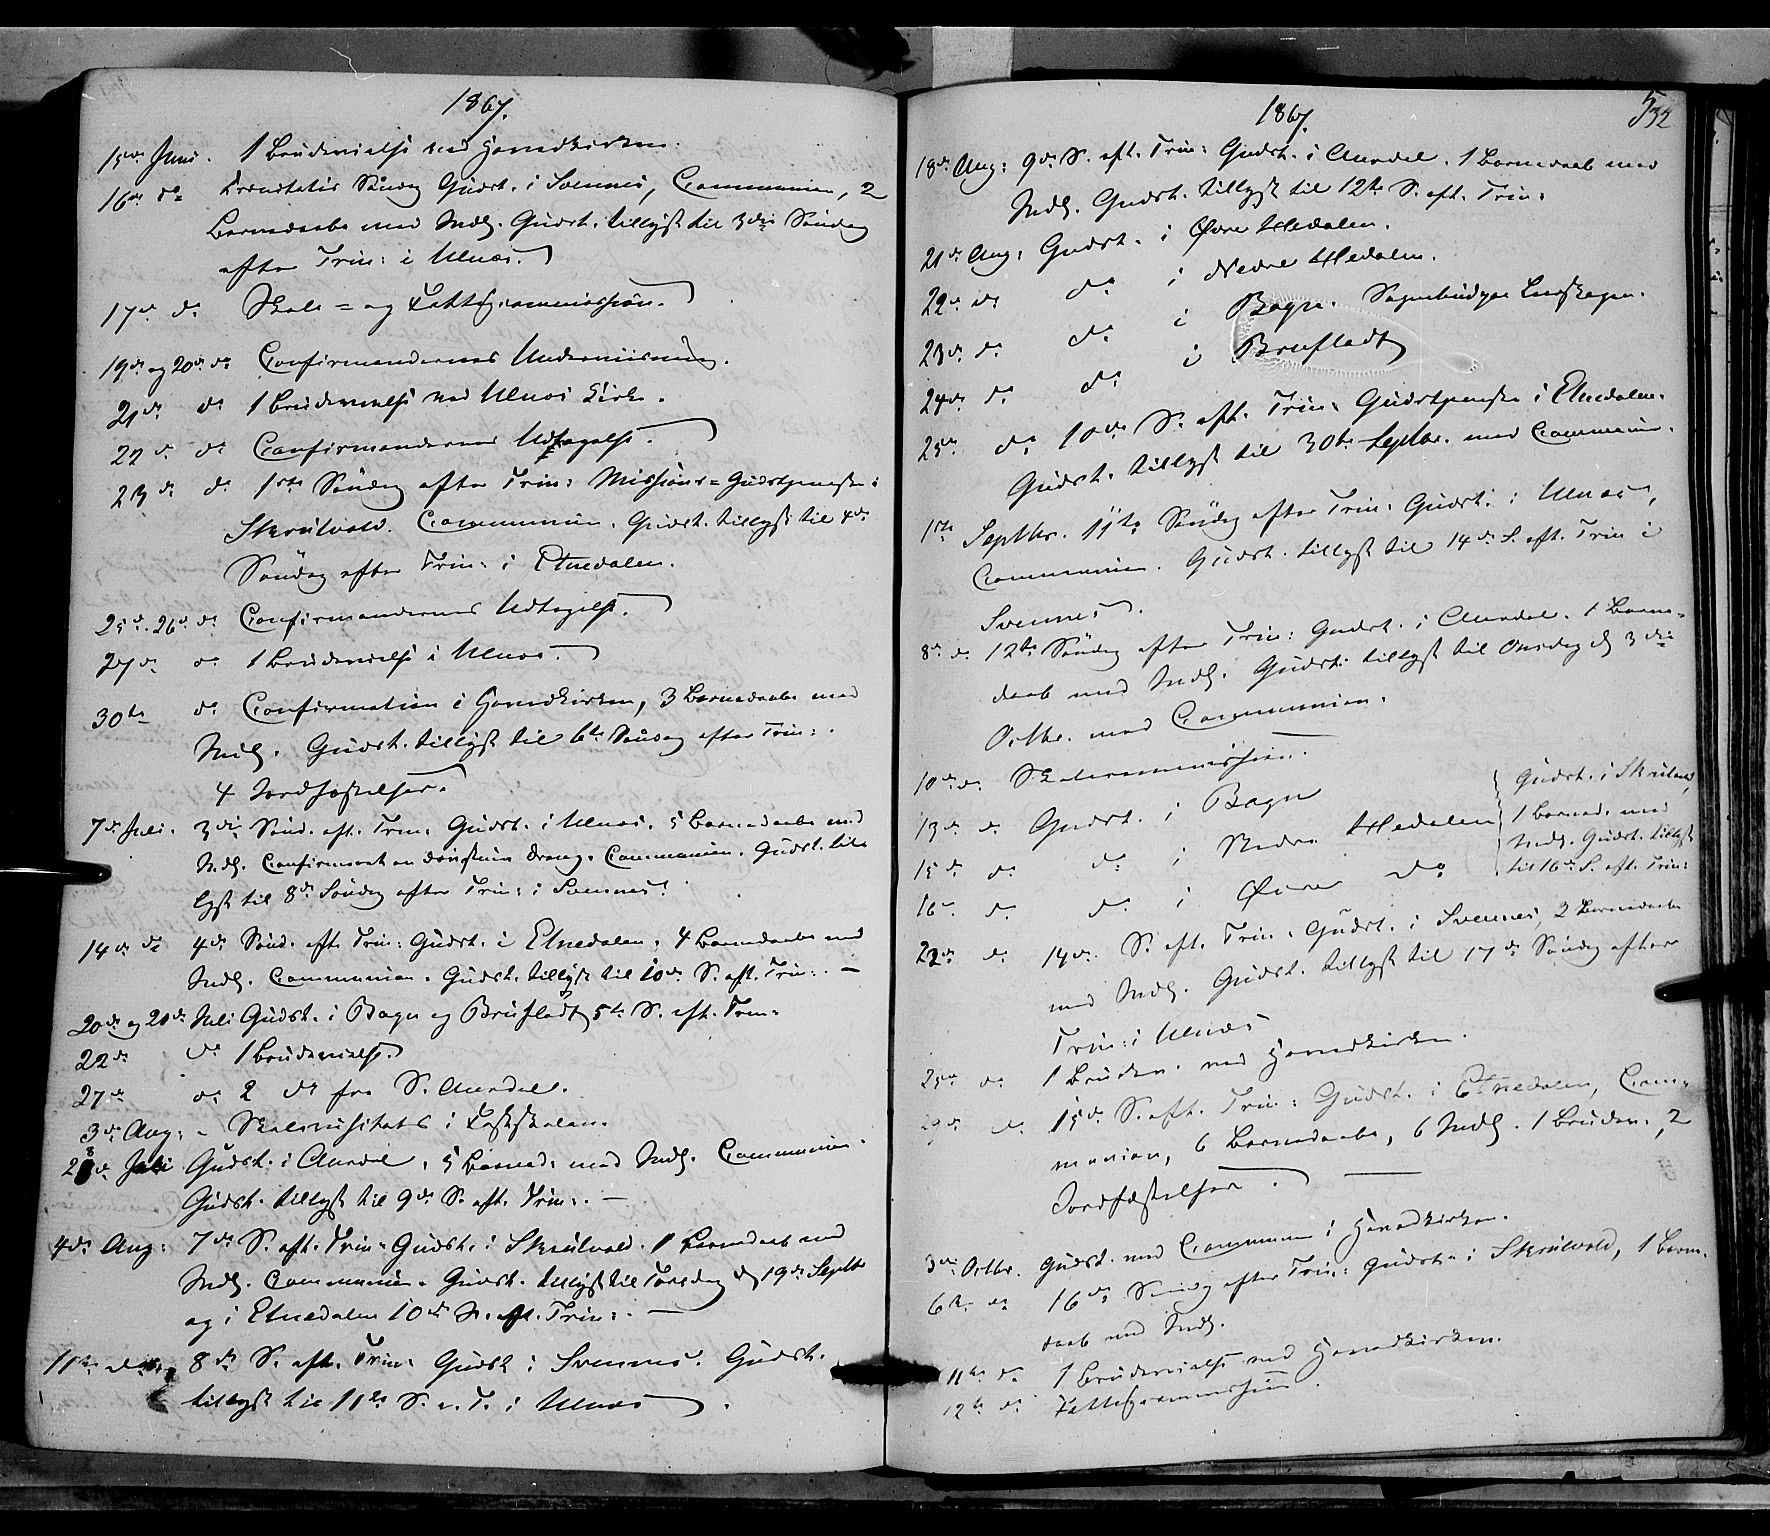 1867.
15de Juni. 1 Brudevielse ved Hovedkirken.
16de do Trinitatis Søndag Gudst. i Svennes, Communion, 2
Barnedaabe med Indl. Gudst. tillyst til 3die Søndag
efter Trin: i Ulnæs.
17de do Skole= og Fattigcommission.
19de og 20de do Confirmandernes Underviisning.
21de do 1 Brudevielse ved Ulnæs Kirke.
22de do Confirmandernes Udtagelse.
23de do 1ste Søndag efter Trin: Missions=Gudstjeneste i
Skrutvold. Communion. Gudst. tillyst til 4de
Søndag efter Trin: i Etnedalen.
25de. 26de do Confirmandernes Udtagelse.
27de do 1 Brudevielse i Ulnæs.
30te do Confirmation i Hovedkirken, 3 Barnedaabe med
Indl. Gudst. tillyst til 6te Søndag efter Trin:.
4 Jordfæstelser.
7de Juli. 3die Sønd. eft. Trin: Gudst. i Ulnæs. 5 Barnedaabe med
Indl. Confirmeret en Dreng. Communion. Gudst. til=
lyst til 8de Søndag efter Trin: i Svennes.
14de do 4de Sønd. efte Trin: Gudst. i Etnedalen, 4 Barnedaabe med
Indl. Communion. Gudst. tillyst til 10de S. eft. Trin:. —
20de og 21de Juli Gudst. i Bagn og Brufladt 5te S. eft. Trin:
22de do 1 Brudevielse.
27de do 2 do fra S. Aurdal.
3de Aug: - Skolevisitats i Fastskolen.
28de Juli Gudst. i Aurdal, 5 Barned. med Indl. Communion.
Gudst. tillyst til 9de S. eft. Trin:. —
4de Aug: 7de S. eft. Trin: Gudst. i Skrutvold. 1 Barnedaab med
Indl. Communion. Gudst. tillyst til Torsdag d 19de Septbr
og i Etnedalen 10de S. eft. Trin:. —
11te do 8de S. eft. Trin: Gudst i Svennes. Gudst.
tillyst til 11te S. e. T. i Ulnæs.
1867.
532
18de Aug: 9de S. eft. Trin: Gudst. i Aurdal. 1 Barnedaab med
Indl. Gudst. tillyst til 12te S. eft. Trin:
21de Aug: Gudst. i Øvre Hedalen.
22de do do i Nedre Hedalen.
23de do do i Bagn. Sognebudsreise
24de do do i Brufladt
25de do 10de S. eft. Trin: Gudstjeneste i Etnedalen.
Gudst. tillyst til 30te Septbr. med Communion.
1ste Septbr. 11te Søndag efter Trin: Gudst. i Ulnæs,
Communion. Gudst. tillyst til 14de S. eft. Trin i
Svennes.
8de do 12te Søndag efter Trin: Gudst. i Aurdal. 1 Barne=
daab med Indl. Gudst. tillyst til Onsdag d 3die
Octbr. med Communion.
10de do Skolecommission.
13de do Gudst. i Bagn
15de do do i Nedre Hedalen
16de do do i Øvre do
Gudst. i Skrutvold,
1 Barned. med
Indl. Gudst. tillyst
til 16de S. eft. Trin:
22de do 14de S. eft. Trin: Gudst. i Svennes, 2 Barnedaabe
med Indl. Gudst. tillyst til 17de Søndag efter
Trin: i Ulnæs
25de do 1 Brudev. ved Hovedkirken.
29de do 15de S. eft. Trin: Gudst. i Etnedalen, Com=
munion, 6 Barnedaabe, 6 Indl. 1 Brudev., 2
Jordfæstelser. —
3die Octbr. Gudst. med Communion i Hovedkirken.
6te do 16de Søndag efter Trin: Gudst. i Skrutvold, 1 Barne=
daab med Indl.
11te do 1 Brudevielse ved Hovedkirken.
12te do Fattigcommission.